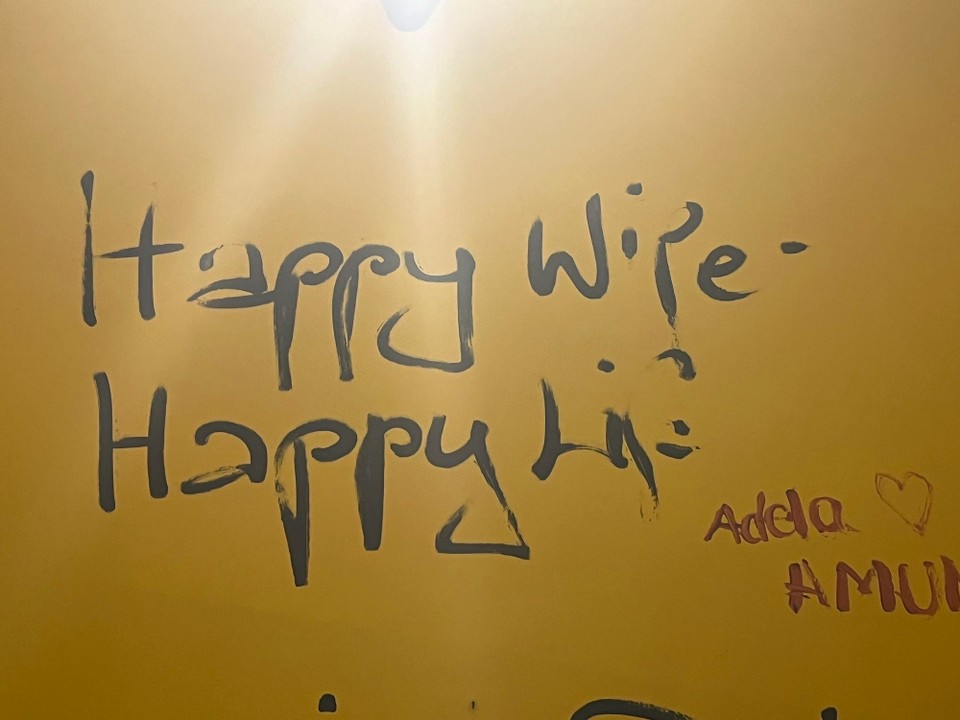 Happy Wife -
Happy Life
Adela ♡